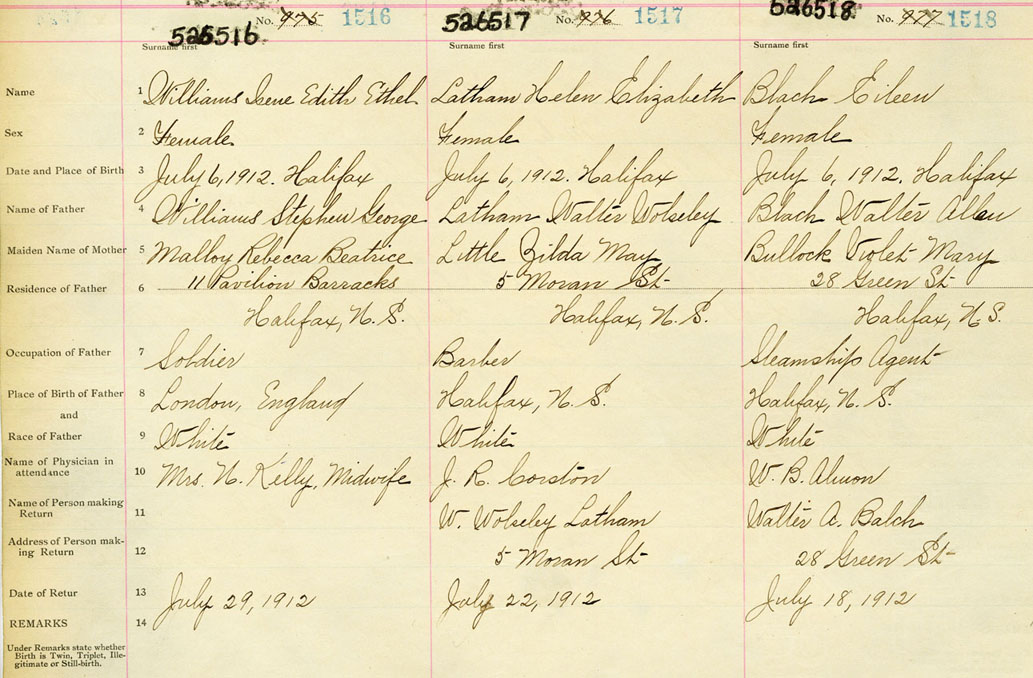 526516 No. 975 1516 526517 No. 976 1517 526518 No. 977 1518
Surname first Surname first Surname first
Name 1 Williams Irene Edith Ethel Latham Helen Elizabeth Blach Eileen
Sex 2 Female Female Female
Date and Place of Birth 3 July 6, 1912. Halifax July 6, 1912. Halifax July 6, 1912. Halifax
Name of Father 4 Williams Stephen George Latham Walter Wolseley Blach Walter Allen
Maiden Name of Mother 5 Malloy Rebecca Beatrice Little Zilda May Bullock Violet Mary
Residence of Father 6 11 Pavilion Barracks 5 Moran St 28 Green St
Halifax, N. S. Halifax, N. S. Halifax, N. S.
Occupation of Father 7 Soldier Barber Steamship Agent
Place of Birth of Father 8 London, England Halifax, N. S. Halifax, N. S.
and
Race of Father 9 White White White
Name of Physician in
attendance 10 Mrs. N. Kelly, Midwife J. R. Corston W. B. Almon
Name of Person making
Return 11 W. Wolseley Latham Walter A. Balch
Address of Person mak-
ing Return 12 5 Moran St 28 Green St
Date of Retur 13 July 29, 1912 July 22, 1912 July 18, 1912
REMARKS 14
Under Remarks state whether
Birth is Twin, Triplet, Ille-
gitimate or Still-birth.